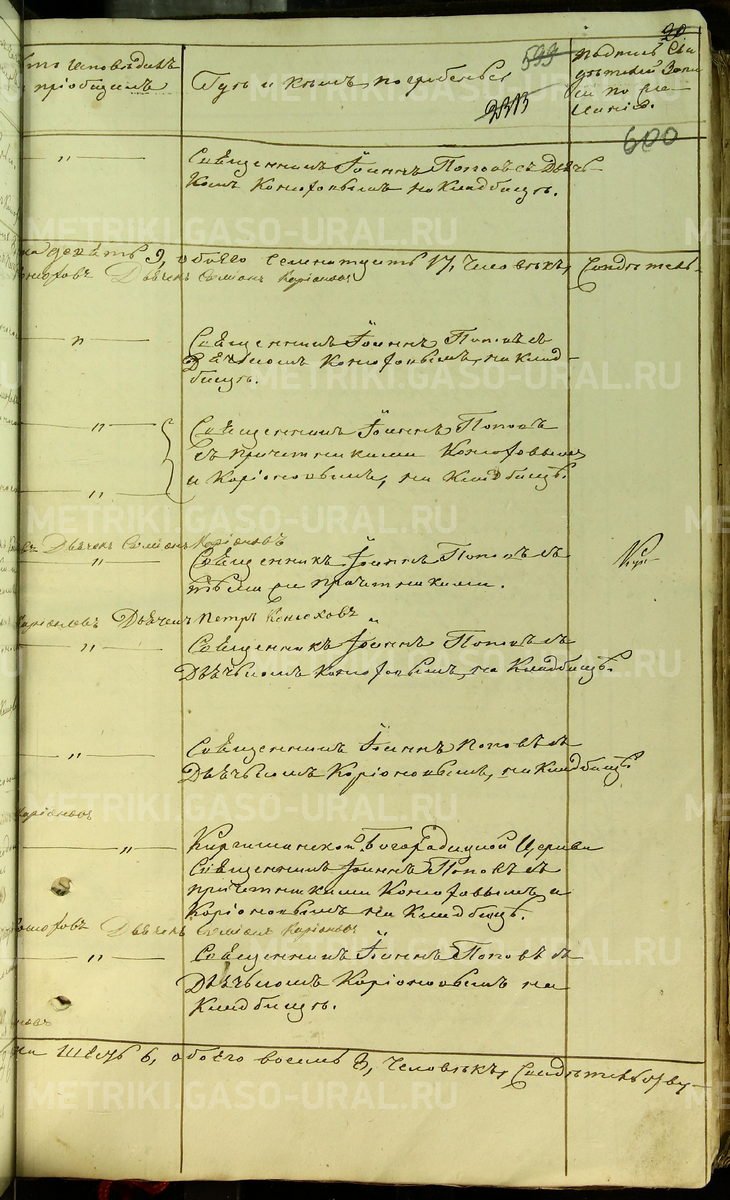 20
Кто исповѣдалъ
и пріобщалъ
Гдѣ и кѣмъ погребены
593
Подпись сви
дѣтелей
600
" Священникъ Іоаннъ Поповъ съ Дьяч
комъ на Кладбищѣ.
на девять 9, обоего семнатцать 17, человѣкъ, Свидѣтель-
Дьячекъ Симіонъ Каріоновъ
" Священникъ Іоаннъ Поповъ съ
Дьячькомъ на Клад-
бищѣ.
" Священникъ Іоаннъ Поповъ
съ причетниками
" и Каріоновымъ, на Кладбищѣ.
Дьячекъ Симіонъ Каріоновъ
" Священникъ Іоаннъ Поповъ съ
тѣми же причетниками.
Каріоновъ Дьячекъ Петръ
" Священникъ Іоаннъ Поповъ съ
Дьячькомъ на Кладбищѣ.
" Священникъ Іоаннъ Поповъ съ
Дьячькомъ Каріоновымъ, на Кладбищѣ.
Каріоновъ
" Киргишанской Богородицкой Церкви
Священникъ Іоаннъ Поповъ съ
причетниками и
Каріоновымъ на Кладбищѣ.
Дьячекъ Симіонъ Каріоновъ
" Священникъ Іоаннъ Поповъ съ
Дьячькомъ Каріоновымъ на
Кладбищѣ.
на шесть 6, обоего восемь 8, человѣкъ, Свидѣтельству-
METRIKI.GASO-URAL.RU